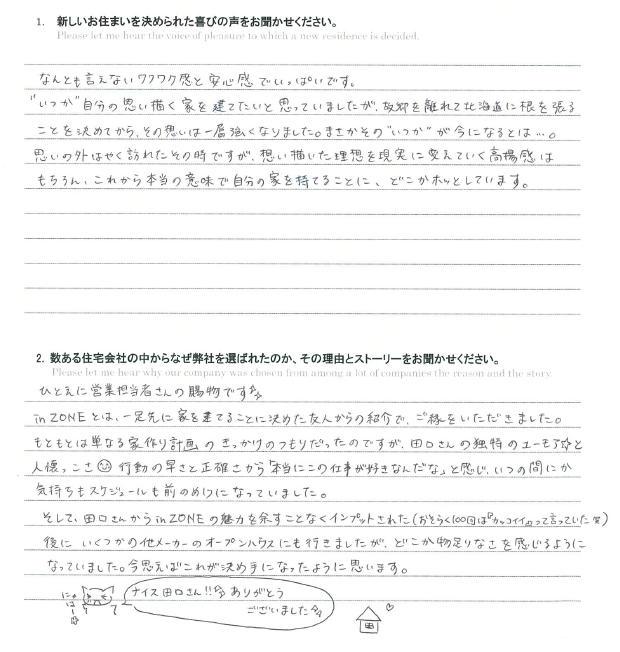 1. 新しいお住まいを決められた喜びの声をお聞かせください。
Please let me hear the voice of pleasure to which a new residence is decided.
なんとも言えないワクワク感と安心感でいっぱいです。
"いつか"自分の思い描く家を建てたいと思っていましたが、故郷を離れて北海道に根を張る
ことを決めてから、その想いは一層強くなりました。まさかその"いつか"が今になるとは…。
思いの外はやく訪れたその時ですが、想い描いた理想を現実に変えていく高揚感は
もちろん、これから本当の意味で自分の家を持てることに、どこかホッとしています。
2. 数ある住宅会社の中からなぜ弊社を選ばれたのか、その理由とストーリーをお聞かせください。
Please let me hear why our company was chosen from among a lot of companies the reason and the story.
ひとえに営業担当者さんの賜物です
inZONEとは、一足先に家を建てることに決めた友人からの紹介で、ご縁をいただきました。
もともとは単なる家作り計画のきっかけのつもりだったのですが、田口さんの独特のユーモア☆と
人懐っこさ☺ 行動の早さと正確さから「本当にこの仕事が好きなんだな」と感じ、いつの間にか
気持ちもスケジュールも前のめりになっていました。
そして、田口さんからinZONEの魅力を余すことなくインプットされた(おそらく100回は『カッコイイ』って言っていた 笑)
後に いくつかの他メーカーのオープンハウスにも行きましたが、どこか物足りなさを感じるように
なっていました。今思えばこれが決め手になったように思います。
にゃはー
ナイス田口さん!! ありがとう
ございました